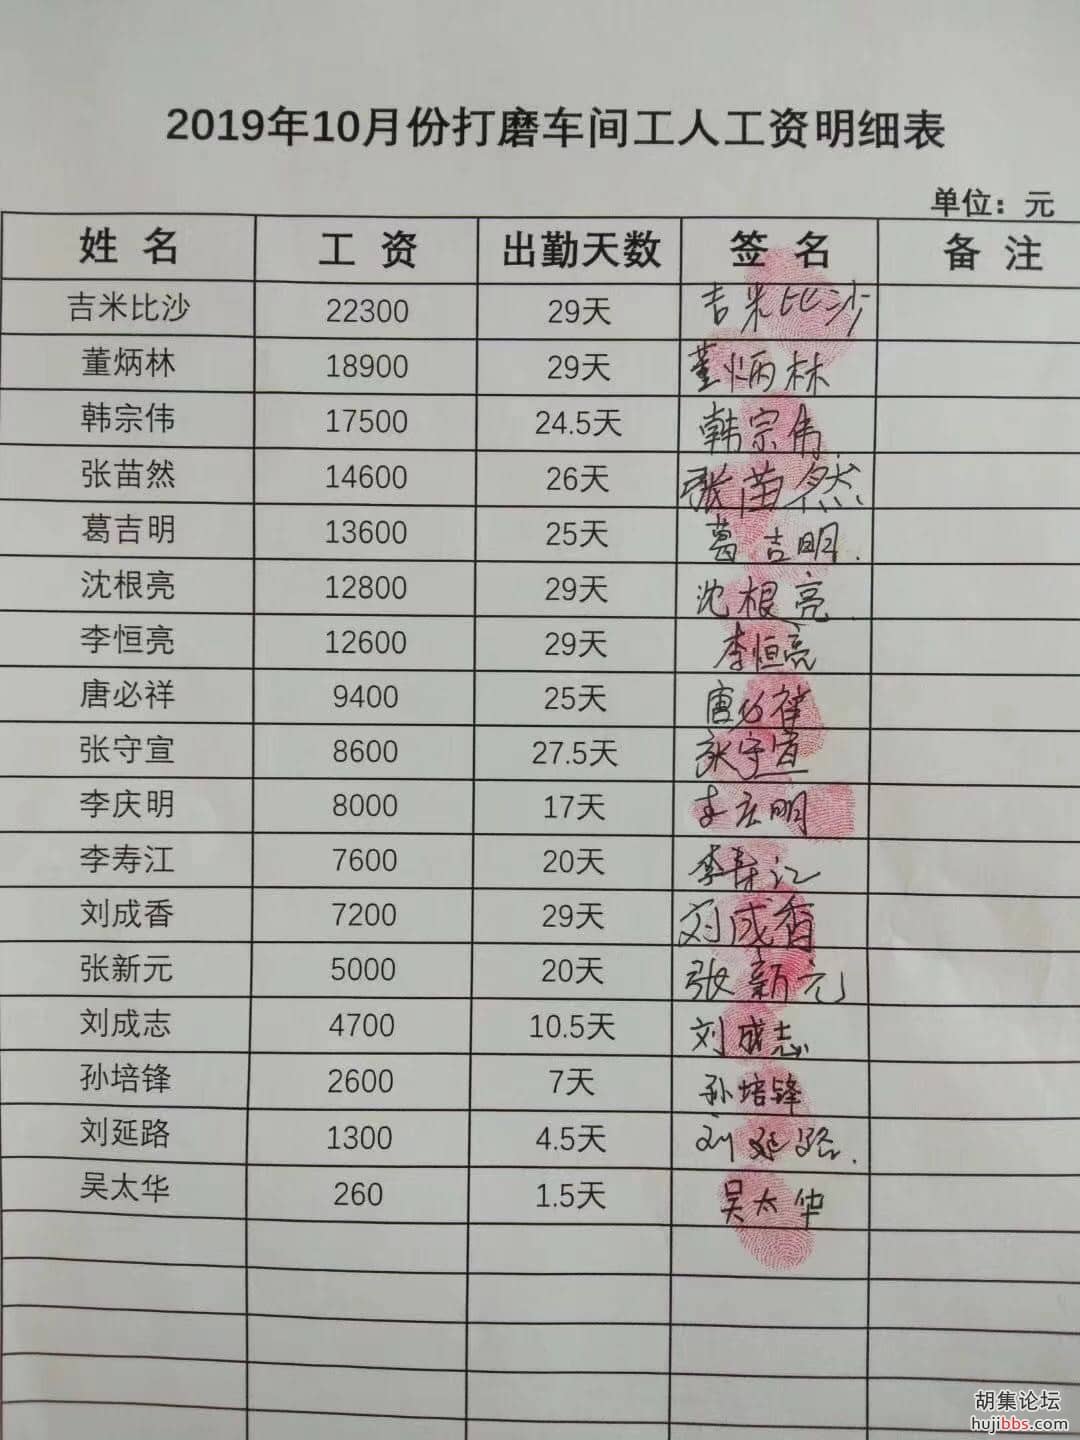 2019年10月份打磨车间工人工资明细表
单位：元
姓 名 工 资 出勤天数 签 名 备 注
吉米比沙 22300 29天 吉米比沙
董炳林 18900 29天 董炳林
韩宗伟 17500 24.5天 韩宗伟
张苗然 14600 26天 张苗然
葛吉明 13600 25天 葛吉明.
沈根亮 12800 29天 沈根亮
李恒亮 12600 29天 李恒亮
唐必祥 9400 25天 唐必祥
张守宣 8600 27.5天 张守宣
李庆明 8000 17天 李庆明
李寿江 7600 20天 李寿江
刘成香 7200 29天 刘成香
张新元 5000 20天 张新元
刘成志 4700 10.5天 刘成志
孙培锋 2600 7天 孙培锋
刘延路 1300 4.5天 刘延路.
吴太华 260 1.5天 吴太华
胡集论坛
hujibbs.com